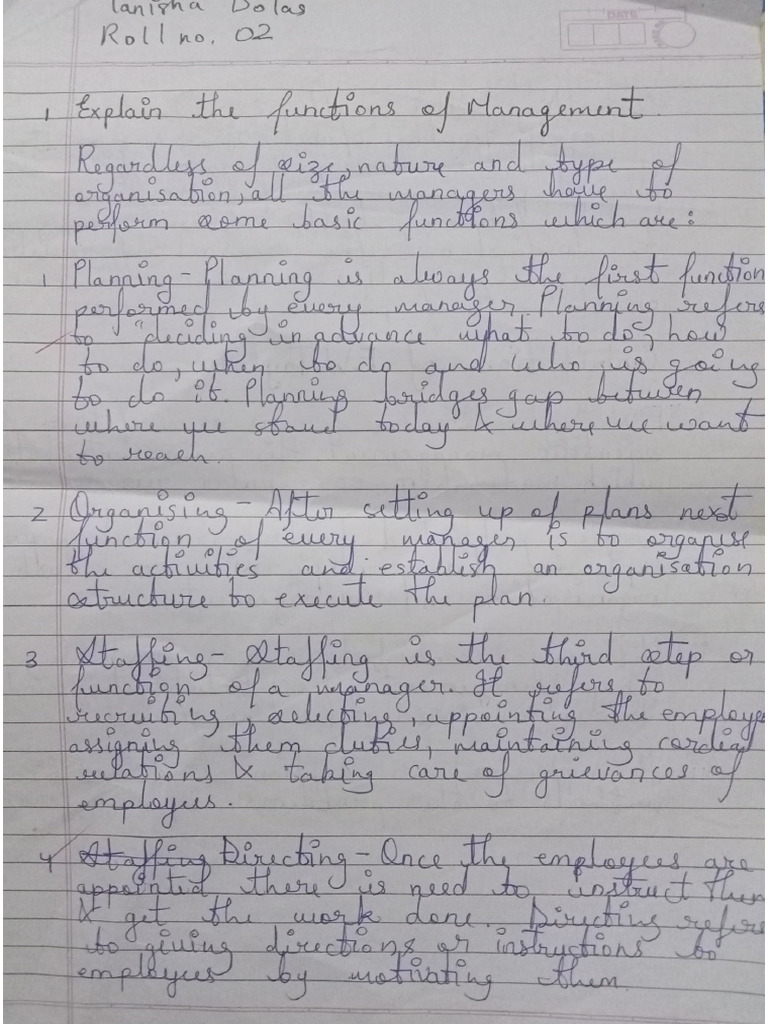 Tanisha Dolas
Roll no. 02
DATE
1 Explain the functions of Management.
Regardless of size, nature and type of
organisation, all the managers have to
perform some basic functions which are:
1 Planning - Planning is always the first function
performed by every manager. Planning refers
to "deciding in advance what to do, how
to do, when to do and who is going
to do it. Planning bridges gap between
where we stand today & where we want
to reach.
2 Organising - After setting up of plans next
function of every manager is to organise
the activities and establish an organisation
structure to execute the plan.
3 Staffing - Staffing is the third step or
function of a manager. It refers to
recruiting, selecting, appointing the employe
assigning them duties, maintaining cordial
relations & taking care of grievances of
employees.
4 Staffing Directing - Once the employees are
appointed there is need to instruct them
& get the work done. Directing refers
to giving directions or instructions to
employees by motivating them.